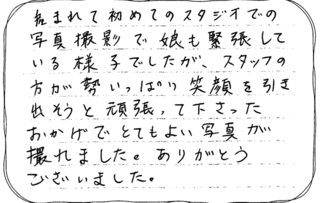 産まれて初めてのスタジオでの
写真撮影で娘も緊張して
いる様子でしたが、スタッフの
方が勢いっぱい笑顔を引き
出そうと頑張って下さった
おかげでとてもよい写真が
撮れました。ありがとう
ございました。